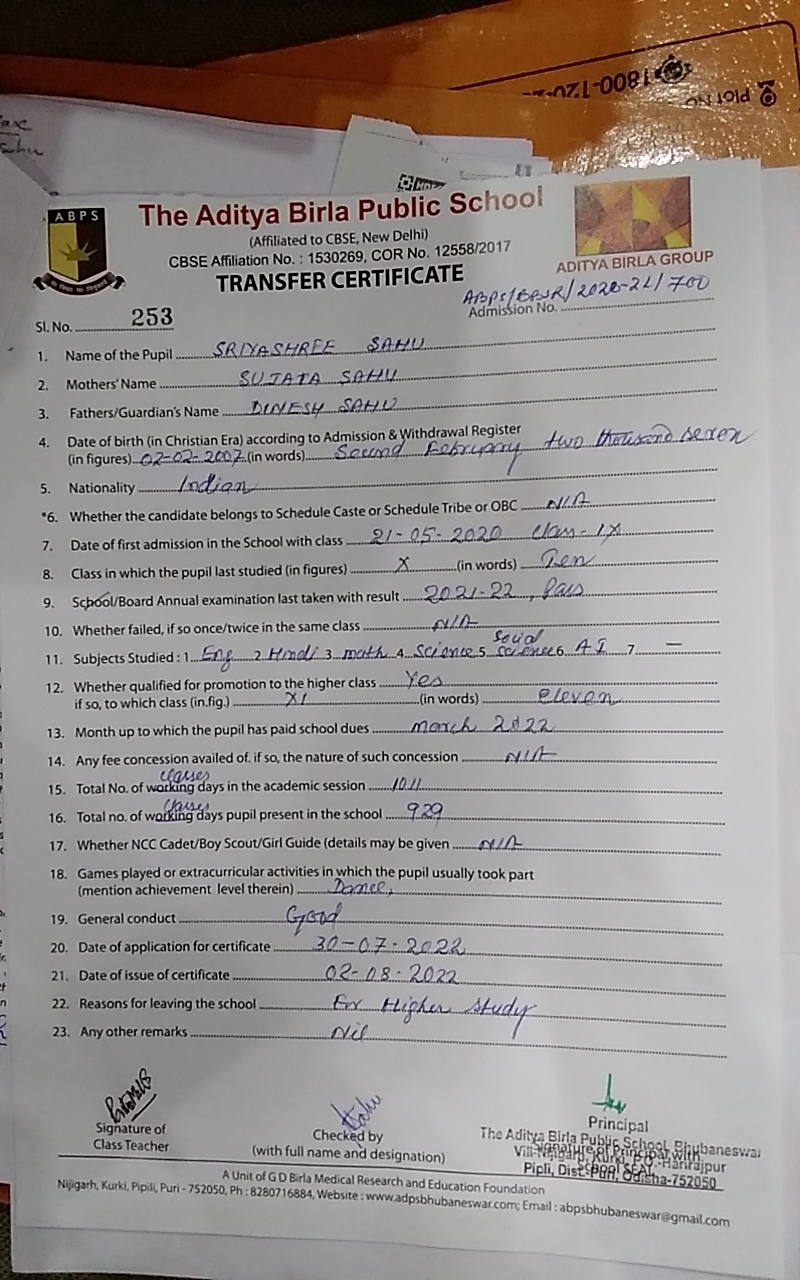 1800-120-
Plot No
ABPS
The Aditya Birla Public School
(Affiliated to CBSE, New Delhi)
CBSE Affiliation No. : 1530269, COR No. 12558/2017
TRANSFER CERTIFICATE
ADITYA BIRLA GROUP
ABPS/BBSR/2020-21/700
Sl. No. 253
Admission No.
1. Name of the Pupil SRIYASHREE SAHU
2. Mothers' Name SUJATA SAHU
3. Fathers/Guardian's Name DINESH SAHU
4. Date of birth (in Christian Era) according to Admission & Withdrawal Register
(in figures) 02-02-2007 (in words) Second February two thousand seven
5. Nationality Indian
*6. Whether the candidate belongs to Schedule Caste or Schedule Tribe or OBC N/A
7. Date of first admission in the School with class 21-05-2020 Class-IX
8. Class in which the pupil last studied (in figures) X (in words) Ten
9. School/Board Annual examination last taken with result 2021-22, Pass
10. Whether failed, if so once/twice in the same class N/A
11. Subjects Studied : 1 Eng 2 Hindi 3 math 4 Science 5 Social science 6 AI 7 —
12. Whether qualified for promotion to the higher class Yes
if so, to which class (in.fig.) XI (in words) eleven
13. Month up to which the pupil has paid school dues march 2022
14. Any fee concession availed of. if so, the nature of such concession N/A
classes
15. Total No. of working days in the academic session 1011
classes
16. Total no. of working days pupil present in the school 929
17. Whether NCC Cadet/Boy Scout/Girl Guide (details may be given N/A
18. Games played or extracurricular activities in which the pupil usually took part
(mention achievement level therein) Dance,
19. General conduct Good
20. Date of application for certificate 30-07-2022
21. Date of issue of certificate 02-08-2022
22. Reasons for leaving the school For Higher study
23. Any other remarks Nil
Signature of
Class Teacher
Sahu
Checked by
(with full name and designation)
Principal
The Aditya Birla Public School, Bhubaneswar
Signature of Principal with
Vill-Nijigarh, Kurki, P.O.-Harirajpur
School SEAL
Pipli, Dist.-Puri, Odisha-752050
A Unit of G D Birla Medical Research and Education Foundation
Nijigarh, Kurki, Pipili, Puri - 752050, Ph : 8280716884, Website : www.adpsbhubaneswar.com; Email : abpsbhubaneswar@gmail.com